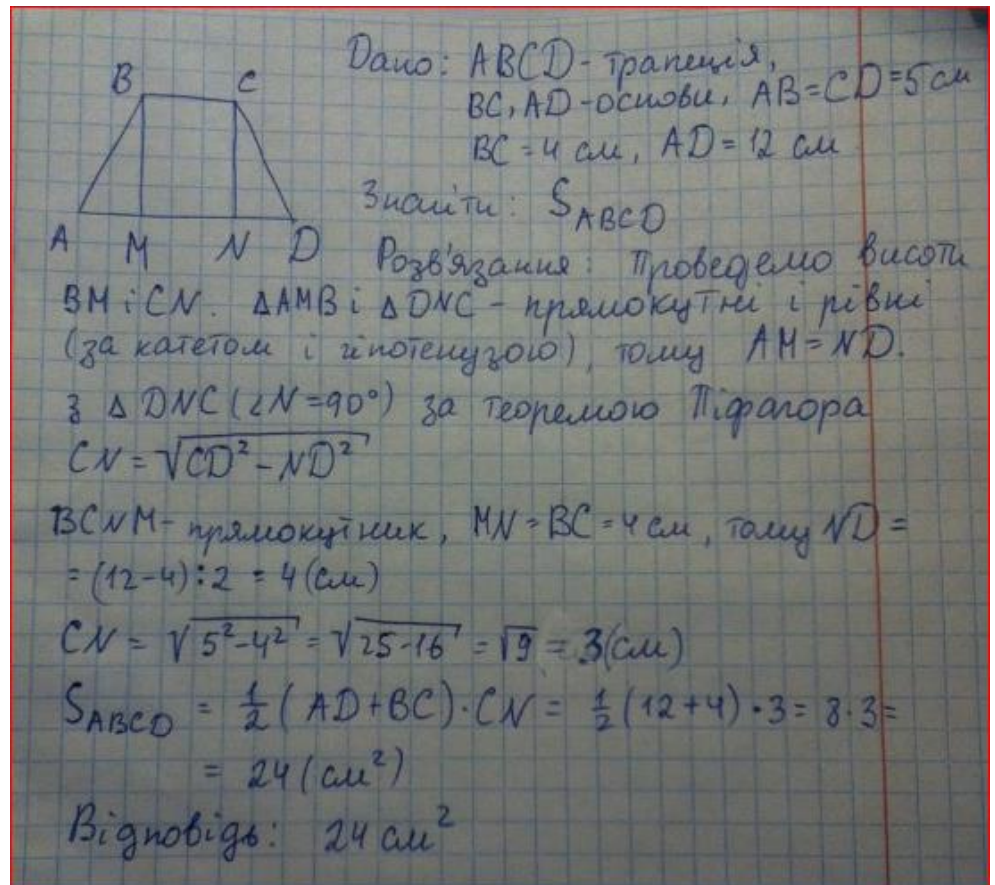 Дано: ABCD - трапеція,
BC, AD - основи, AB = CD = 5 см
BC = 4 см, AD = 12 см
Знайти: S_ABCD
B C
A M N D
Розв'язання: Проведемо висоти
BM і CN. ΔAMB і ΔDNC - прямокутні і рівні
(за катетом і гіпотенузою), тому AM = ND.
З ΔDNC (∠N = 90°) за теоремою Піфагора
CN = √(CD² - ND²)
BCNM - прямокутник, MN = BC = 4 см, тому ND =
= (12 - 4) : 2 = 4 (см)
CN = √(5² - 4²) = √(25 - 16) = √9 = 3 (см)
S_ABCD = 1/2 (AD + BC) · CN = 1/2 (12 + 4) · 3 = 8 · 3 =
= 24 (см²)
Відповідь: 24 см²